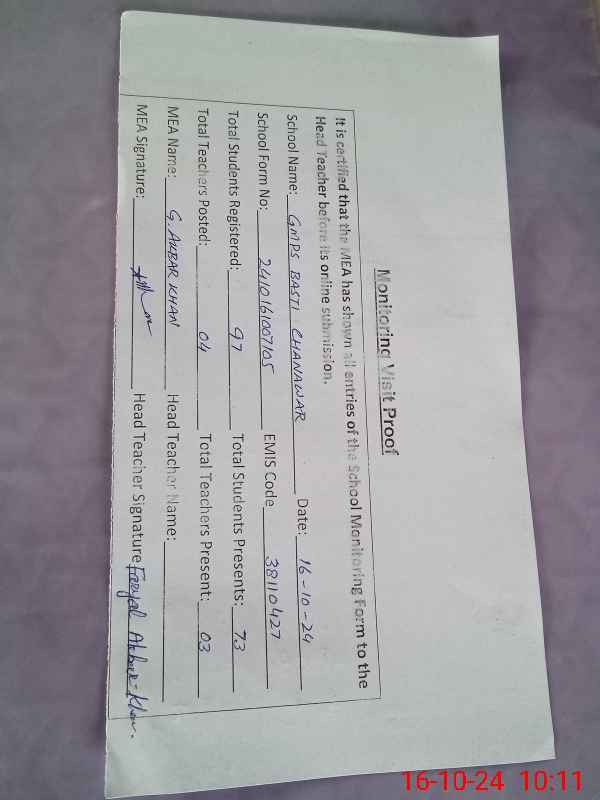 Monitoring Visit Proof
It is certified that the MEA has shown all entries of the School Monitoring Form to the
Head Teacher before its online submission.
School Name: GMPS BASTI CHANAWAR Date: 16-10-24
School Form No: 2410161007105 EMIS Code 38110427
Total Students Registered: 97 Total Students Presents: 73
Total Teachers Posted: 04 Total Teachers Present: 03
MEA Name: G. AKBAR KHAN Head Teacher Name:
MEA Signature: Head Teacher Signature Faryal Akbar Khan.
16-10-24 10:11